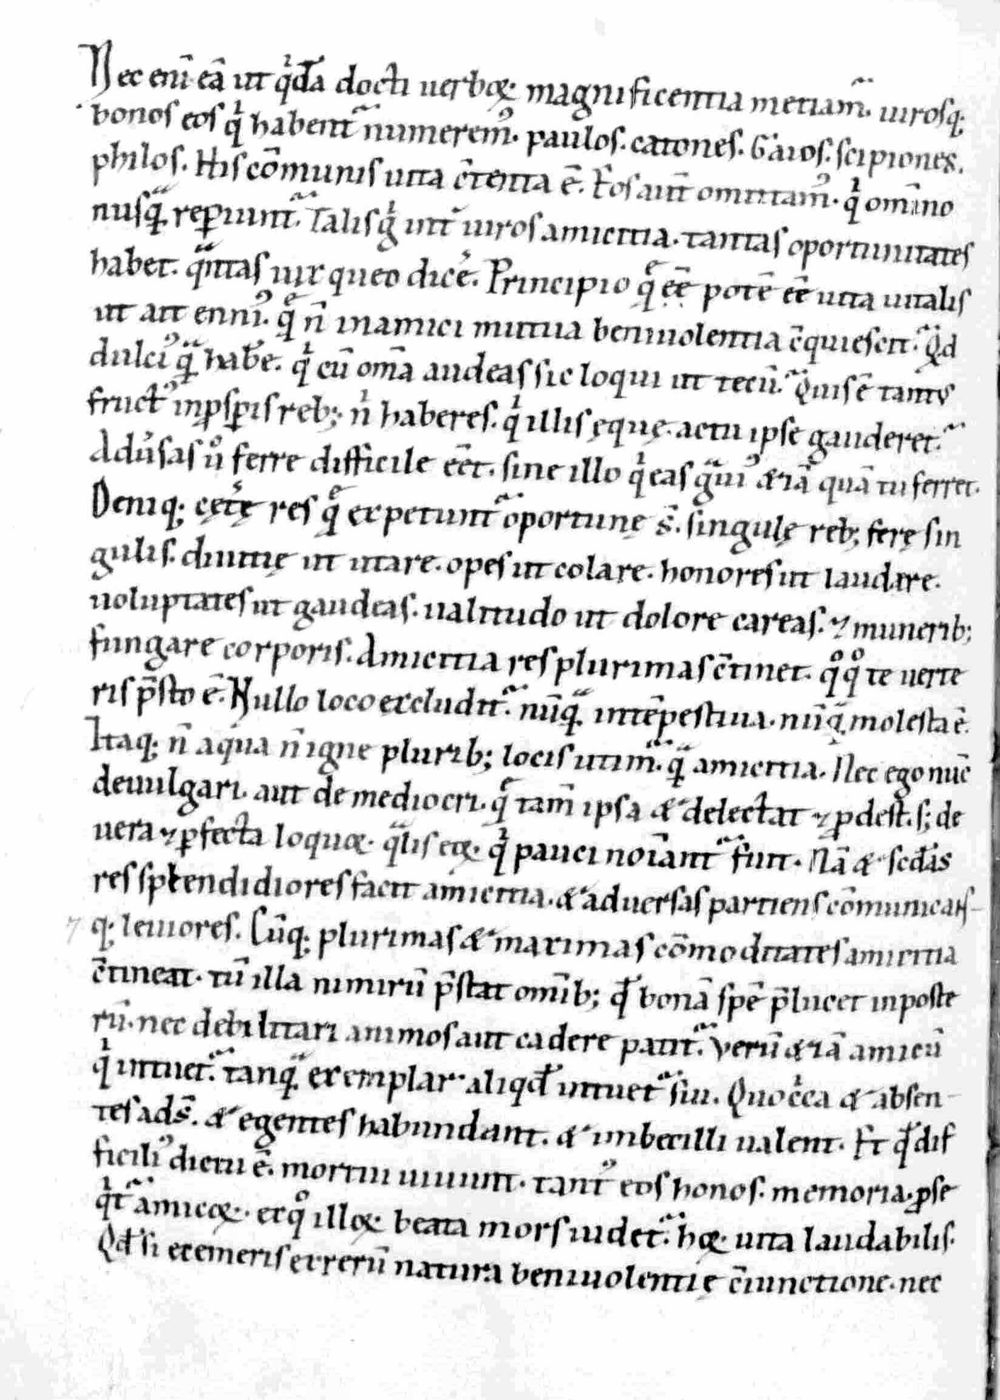 Nec enī eā ut q̇dā docti uerboꝝ magnificentia metiam̃. uirosq;
bonos eos q̇ habent̃ numerem᷒. paulos. catones. Gaios. scipiones.
philos. His cōmunis uita c̄tenta ē. Eos aut̄ omittam᷒. q̇ om̄ino
nusꝗ̃ reꝑiunt̃. Talis gͥ int̃ uiros amicitia. tantas oportunitates
habet. q̃ntas uix queo dic̄e. Principio q̄ eē potē eē uita uitalis
ut ait enni᷒. q̄ n̄ in amici mutua beniuolentia c̄quiescit. Qd̃
dulci᷒ ꝗ̃ habē. q̇ cū om̄a audeas sic loqui ut tecū. Quis ē tant᷒
fruct᷒ inꝓsꝑis reb; n̄ haberes. q̇ illis ęquę. actu ipse gauderet.
Adu̇sas u̇ ferre difficile eēt. sine illo q̇ eas g̃ui᷒ &iā quā tu ferret.
Deniq; cęt̄ę res q̄ expetunt̃ oportunę s̄. singulę reb; ferę sin
gulis. diuitię ut utare. opes ut colare. honores ut laudare.
uoluptates ut gaudeas. ualitudo ut dolore careas. ⁊ munerib;
fungare corporis. Amicitia res plurimas c̄tinet. q̊q̊ te uerte
ris p̄sto ē. Nullo loco excludit̃. nūꝗ̃ intēpestiua. nūꝗ̃ molesta ē.
Itaq; n̄ aqua n̄ igne plurib; locis utim̃. ꝗ̃ amicitia. Nec ego nūc
deuulgari. aut de mediocri. q̄ tam̄ ipsa & delectat ⁊ ꝓdest. s; de
uera ⁊ ꝑfecta loquoꝝ. q̃lis eoꝝ. q̇ pauci noīant̃ fuit. Nā & sc̄das
res splendidiores facit amicitia. & aduersas partiens cōmunicans-
q; leuiores. Cūq; plurimas & maximas cōmoditates amicitia
c̄tineat. tū illa nimirū p̄stat om̄ib; qđ bonā spē p̄lucet inposte
rū. nec debilitari animos aut cadere patit̃. Verū &iā amicū
q̇ intuet̃. tanꝗ̃ exemplar aliqđ intuet̃ sui. Quoc̄ca & absen-
tes ads̄. & egentes habundant. & imbecilli ualent. Et qđ dif
ficili᷒ dictu ē. mortui uiuunt. tant᷒ eos honos. memoria. ꝓse
q̇t̃ amicoꝝ. ex q̊ illoꝝ beata mors uidet̃. hoꝝ uita laudabilis.
Qđ si exemeris ex rerū natura beniuolentię c̄iunctione. nec